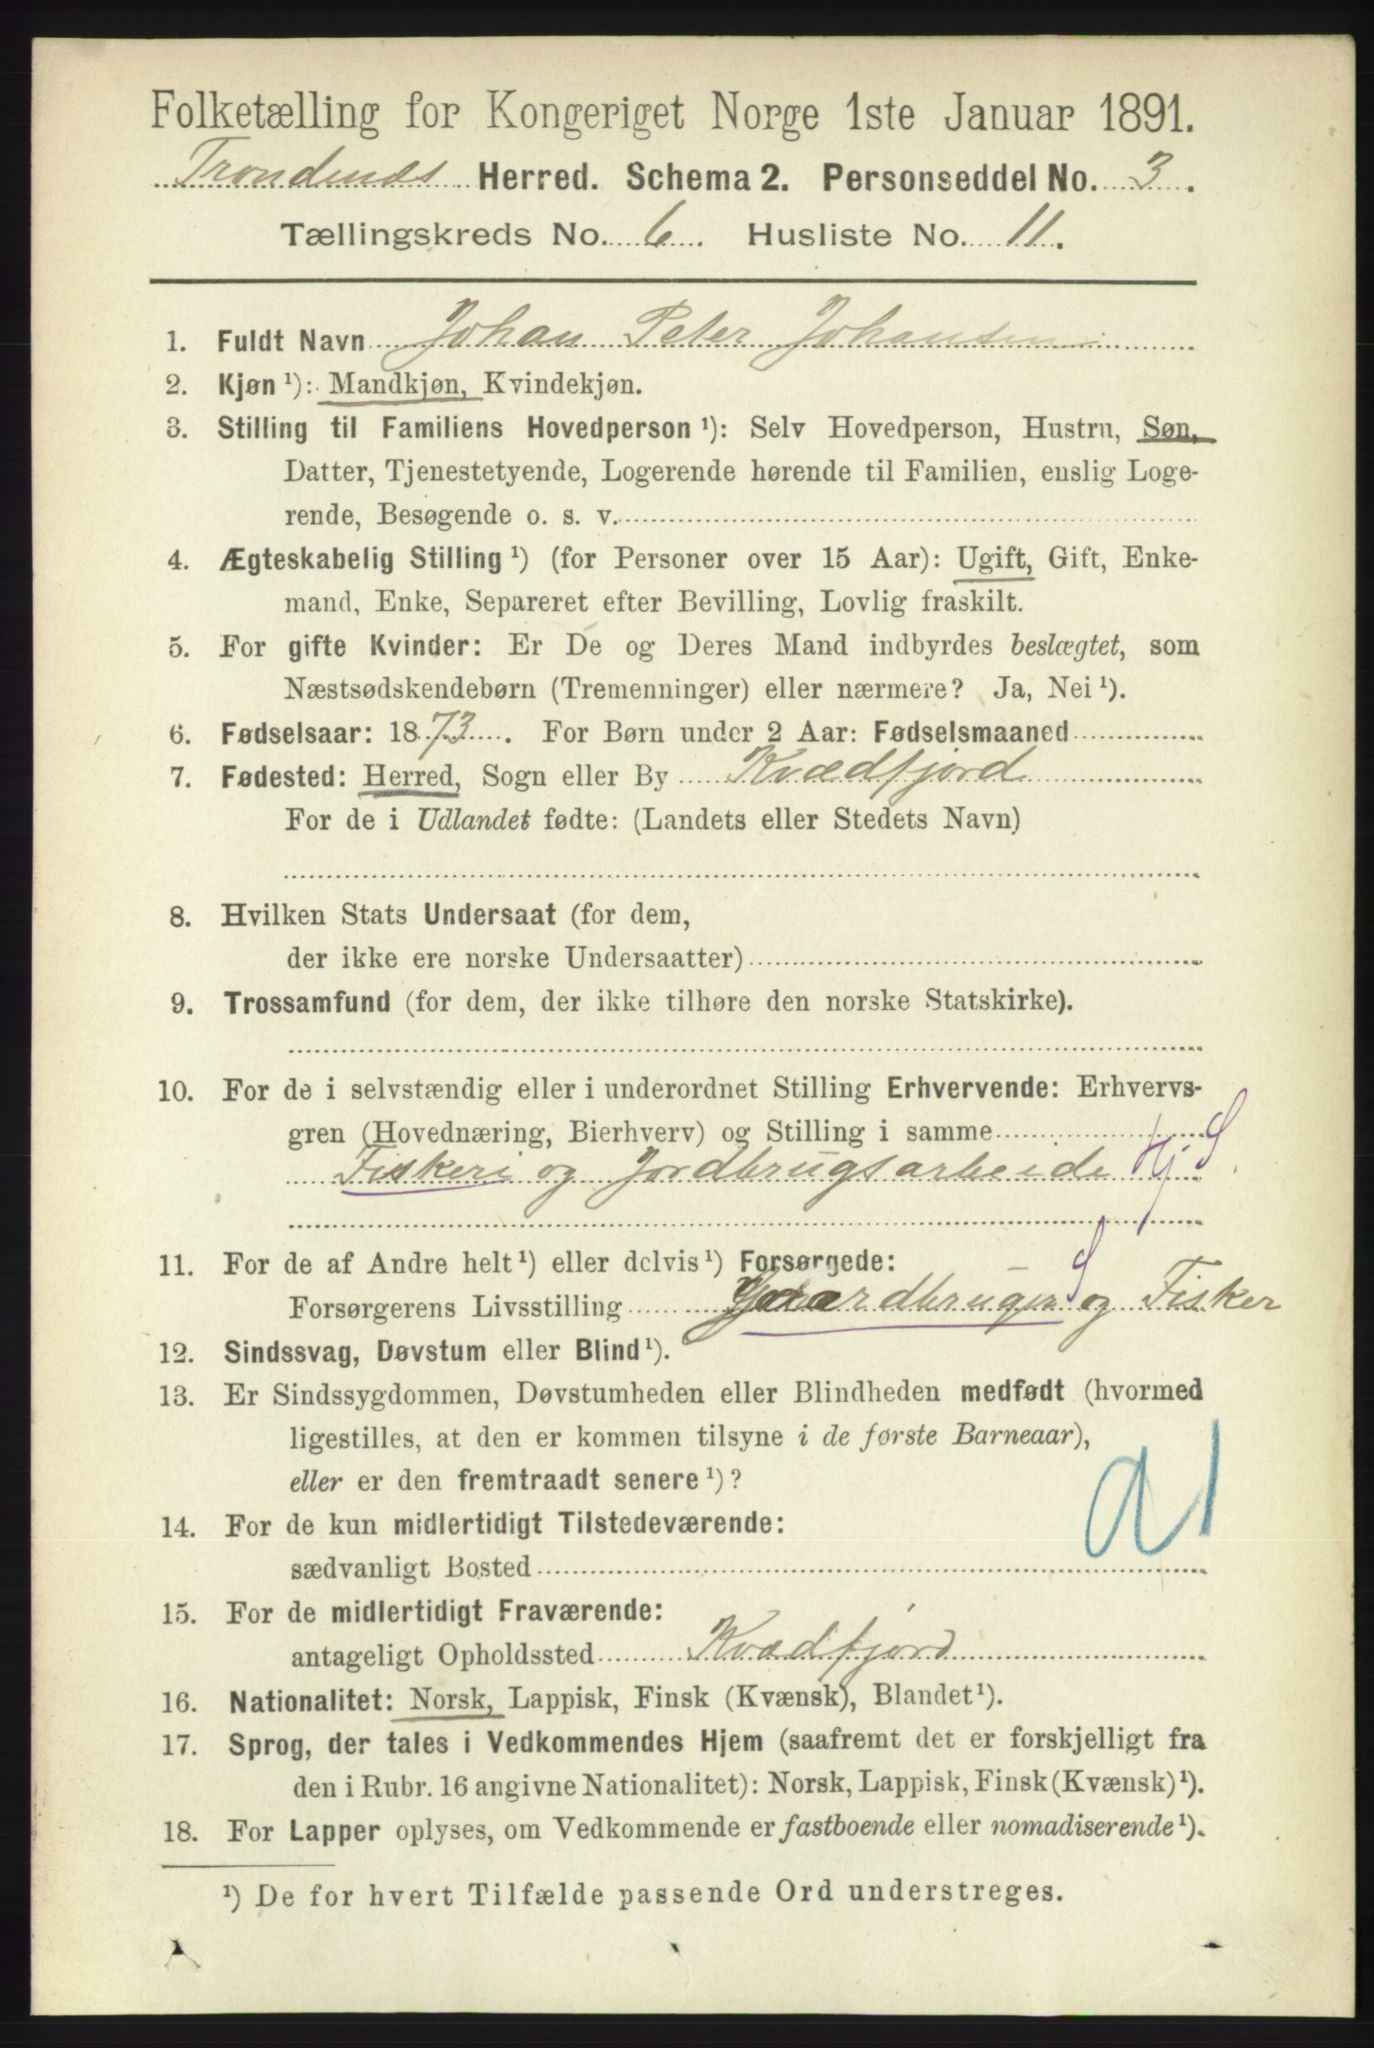 Folketælling for Kongeriget Norge 1ste Januar 1891.
Trondenæs Herred. Schema 2. Personseddel No. 3.
Tællingskreds No. 6. Husliste No. 11.
1. Fuldt Navn Johan Peter Johansen
2. Kjøn¹): Mandkjøn, Kvindekjøn.
3. Stilling til Familiens Hovedperson¹): Selv Hovedperson, Hustru, Søn,
Datter, Tjenestetyende, Logerende hørende til Familien, enslig Loge-
rende, Besøgende o. s. v.
4. Ægteskabelig Stilling¹) (for Personer over 15 Aar): Ugift, Gift, Enke-
mand, Enke, Separeret efter Bevilling, Lovlig fraskilt.
5. For gifte Kvinder: Er De og Deres Mand indbyrdes beslægtet, som
Næstsødskendebørn (Tremenninger) eller nærmere? Ja, Nei¹).
6. Fødselsaar: 1873. For Børn under 2 Aar: Fødselsmaaned
7. Fødested: Herred, Sogn eller By Kvædfjord
For de i Udlandet fødte: (Landets eller Stedets Navn)
8. Hvilken Stats Undersaat (for dem,
der ikke ere norske Undersaatter)
9. Trossamfund (for dem, der ikke tilhøre den norske Statskirke).
10. For de i selvstændig eller i underordnet Stilling Erhvervende: Erhvervs-
gren (Hovednæring, Bierhverv) og Stilling i samme
Fiskeri og Jordbrugsarbeide Hj S.
11. For de af Andre helt¹) eller delvis¹) Forsørgede: S
Forsørgerens Livsstilling Gaardbruger og Fisker
12. Sindssvag, Døvstum eller Blind¹).
13. Er Sindssygdommen, Døvstumheden eller Blindheden medfødt (hvormed
ligestilles, at den er kommen tilsyne i de første Barneaar),
eller er den fremtraadt senere¹)?
a1
14. For de kun midlertidigt Tilstedeværende:
sædvanligt Bosted
15. For de midlertidigt Fraværende:
antageligt Opholdssted Kvædfjord
16. Nationalitet: Norsk, Lappisk, Finsk (Kvænsk), Blandet¹).
17. Sprog, der tales i Vedkommendes Hjem (saafremt det er forskjelligt fra
den i Rubr. 16 angivne Nationalitet): Norsk, Lappisk, Finsk (Kvænsk)¹).
18. For Lapper oplyses, om Vedkommende er fastboende eller nomadiserende¹).
¹) De for hvert Tilfælde passende Ord understreges.